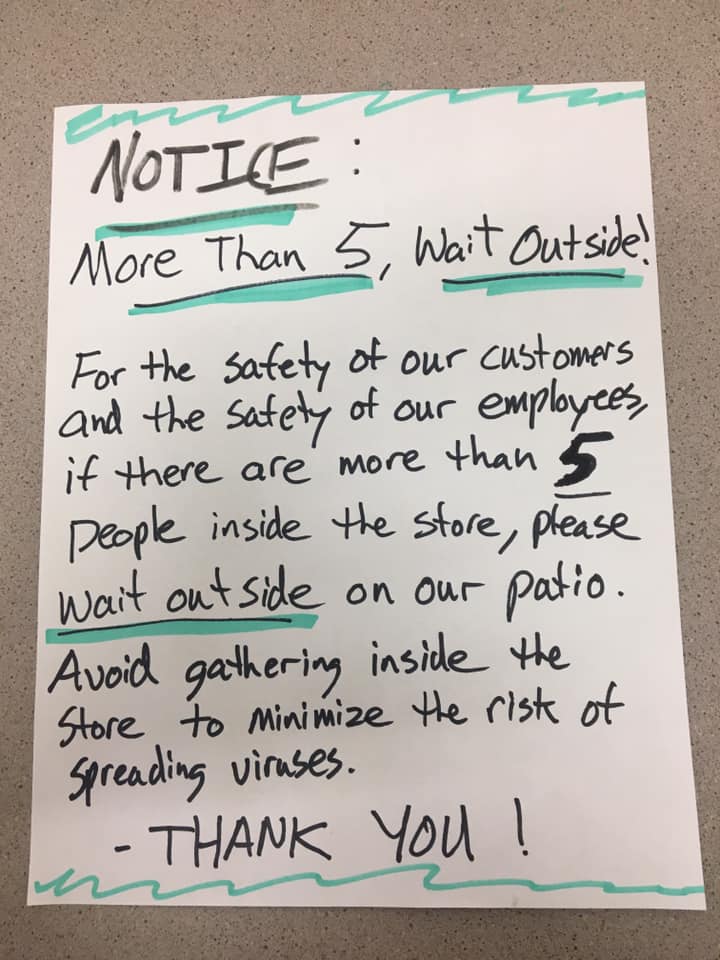 NOTICE:
More Than 5, Wait Outside!
For the safety of our customers
and the safety of our employees,
if there are more than 5
People inside the store, please
wait outside on our patio.
Avoid gathering inside the
store to minimize the risk of
spreading viruses.
- THANK YOU!